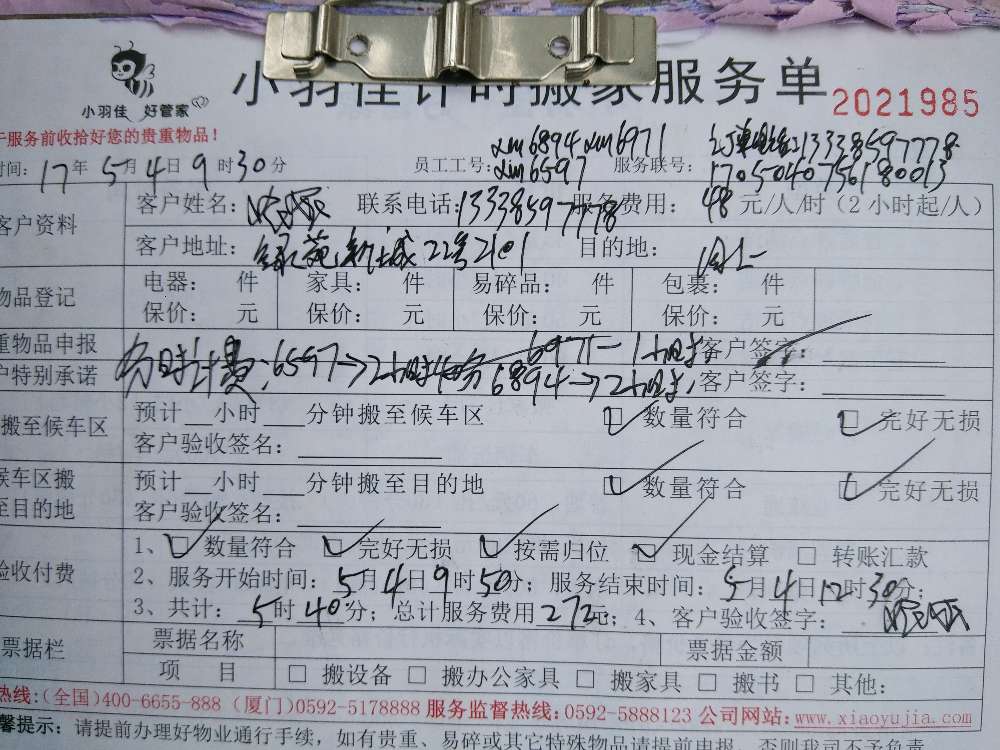 小羽佳 好管家
小羽佳计时搬家服务单 2021985
服务前收拾好您的贵重物品！
xm6894 xm6971 订单电话:13338597778
时间: 17年5月4日9时30分 员工工号: xm6597 服务联号: 1705040756180013
客户资料 客户姓名: 联系电话: 13338597778 服务费用: 48元/人/时（2小时起/人）
客户地址: 绿苑新城22号 目的地: 同上
物品登记 电器: 件 家具: 件 易碎品: 件 包裹: 件
保价: 元 保价: 元 保价: 元 保价: 元
重物品申报 6971—1小时 客户签字:
户特别承诺 分时计费:6597→2小时 6894→2小时 客户签字:
搬至候车区 预计___小时___分钟搬至候车区 ☑ 数量符合 ☑ 完好无损
客户验收签名:
候车区搬至目的地 预计___小时___分钟搬至目的地 ☑ 数量符合 ☑ 完好无损
客户验收签名:
验收付费 1、☑ 数量符合 ☑ 完好无损 ☑ 按需归位 ☑ 现金结算 □ 转账汇款
2、服务开始时间: 5月4日9时50分; 服务结束时间: 5月4日12时30分;
3、共计: 5时40分; 总计服务费用272元; 4、客户验收签字:
票据栏 票据名称 票据金额
项 目 □ 搬设备 □ 搬办公家具 □ 搬家具 □ 搬书 □ 其他:
热线:(全国)400-6655-888 (厦门)0592-5178888 服务监督热线:0592-5888123 公司网站:www.xiaoyujia.com
馨提示: 请提前办理好物业通行手续，如有贵重、易碎或其它特殊物品请提前申报，否则我司不予负责